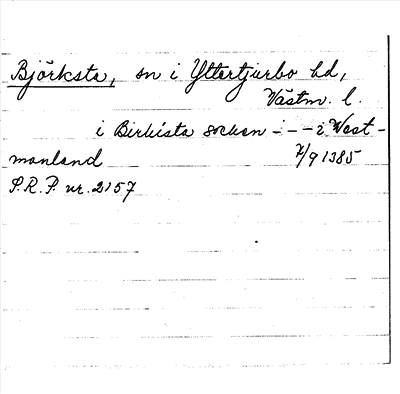 Björksta, sn i Yttertjurbo hd,
Västm. l.
i Birkista socken - - - i West-
manland 7/9 1385
S.R.P. nr. 2157